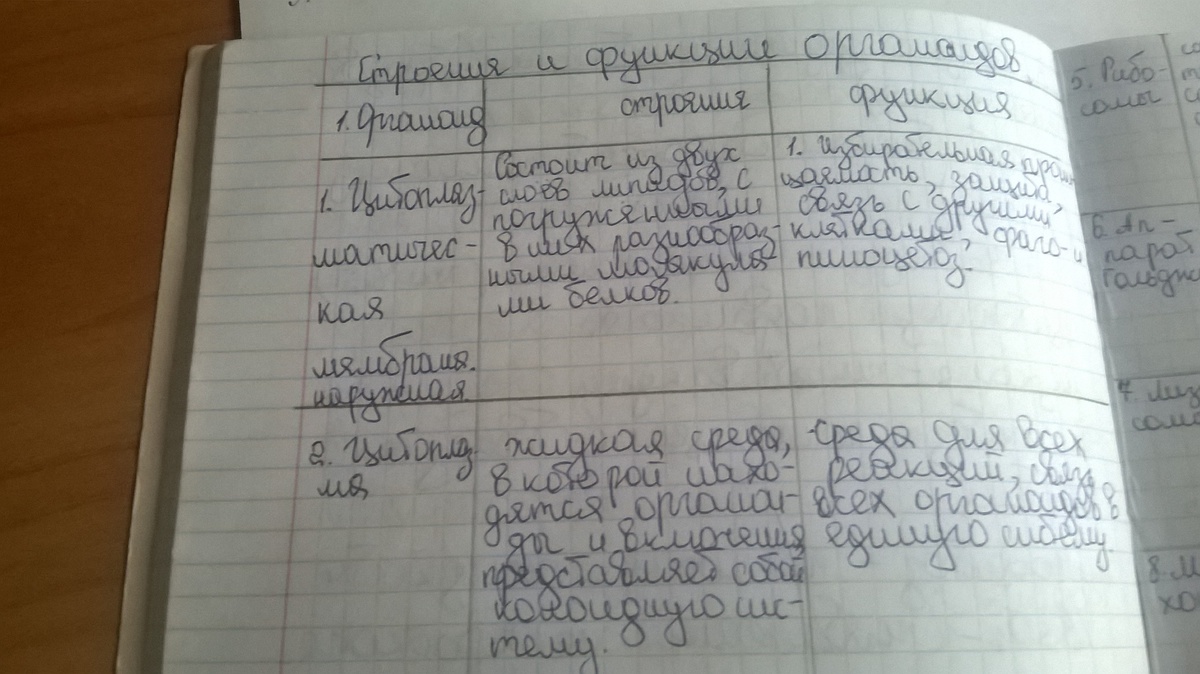 Строения и функции органоидов
1. Органоид
строения
функция
1. Цитоплаз-
матичес-
кая
мямбраня.
наружная
Состоит из двух
слоёв липидов, с
погружёнными
в них разнообраз-
ными молякуля-
ми белков.
1. Избирательная прони
цаямасть, защита,
связь с другими
клятками, фаго- и
пиноцетоз.
2. Цитоплаз
мя
жидкая среда,
в которой нахо-
дятся органои-
ды и включения
представляет собой
колоидную сис-
тему.
-среда для всех
реакций, связь
всех органоидов в
единую систему.
5. Рибо-
сомы
6. Ап-
парат
Гольджи
7. Лизо
сомы
8. М
хо